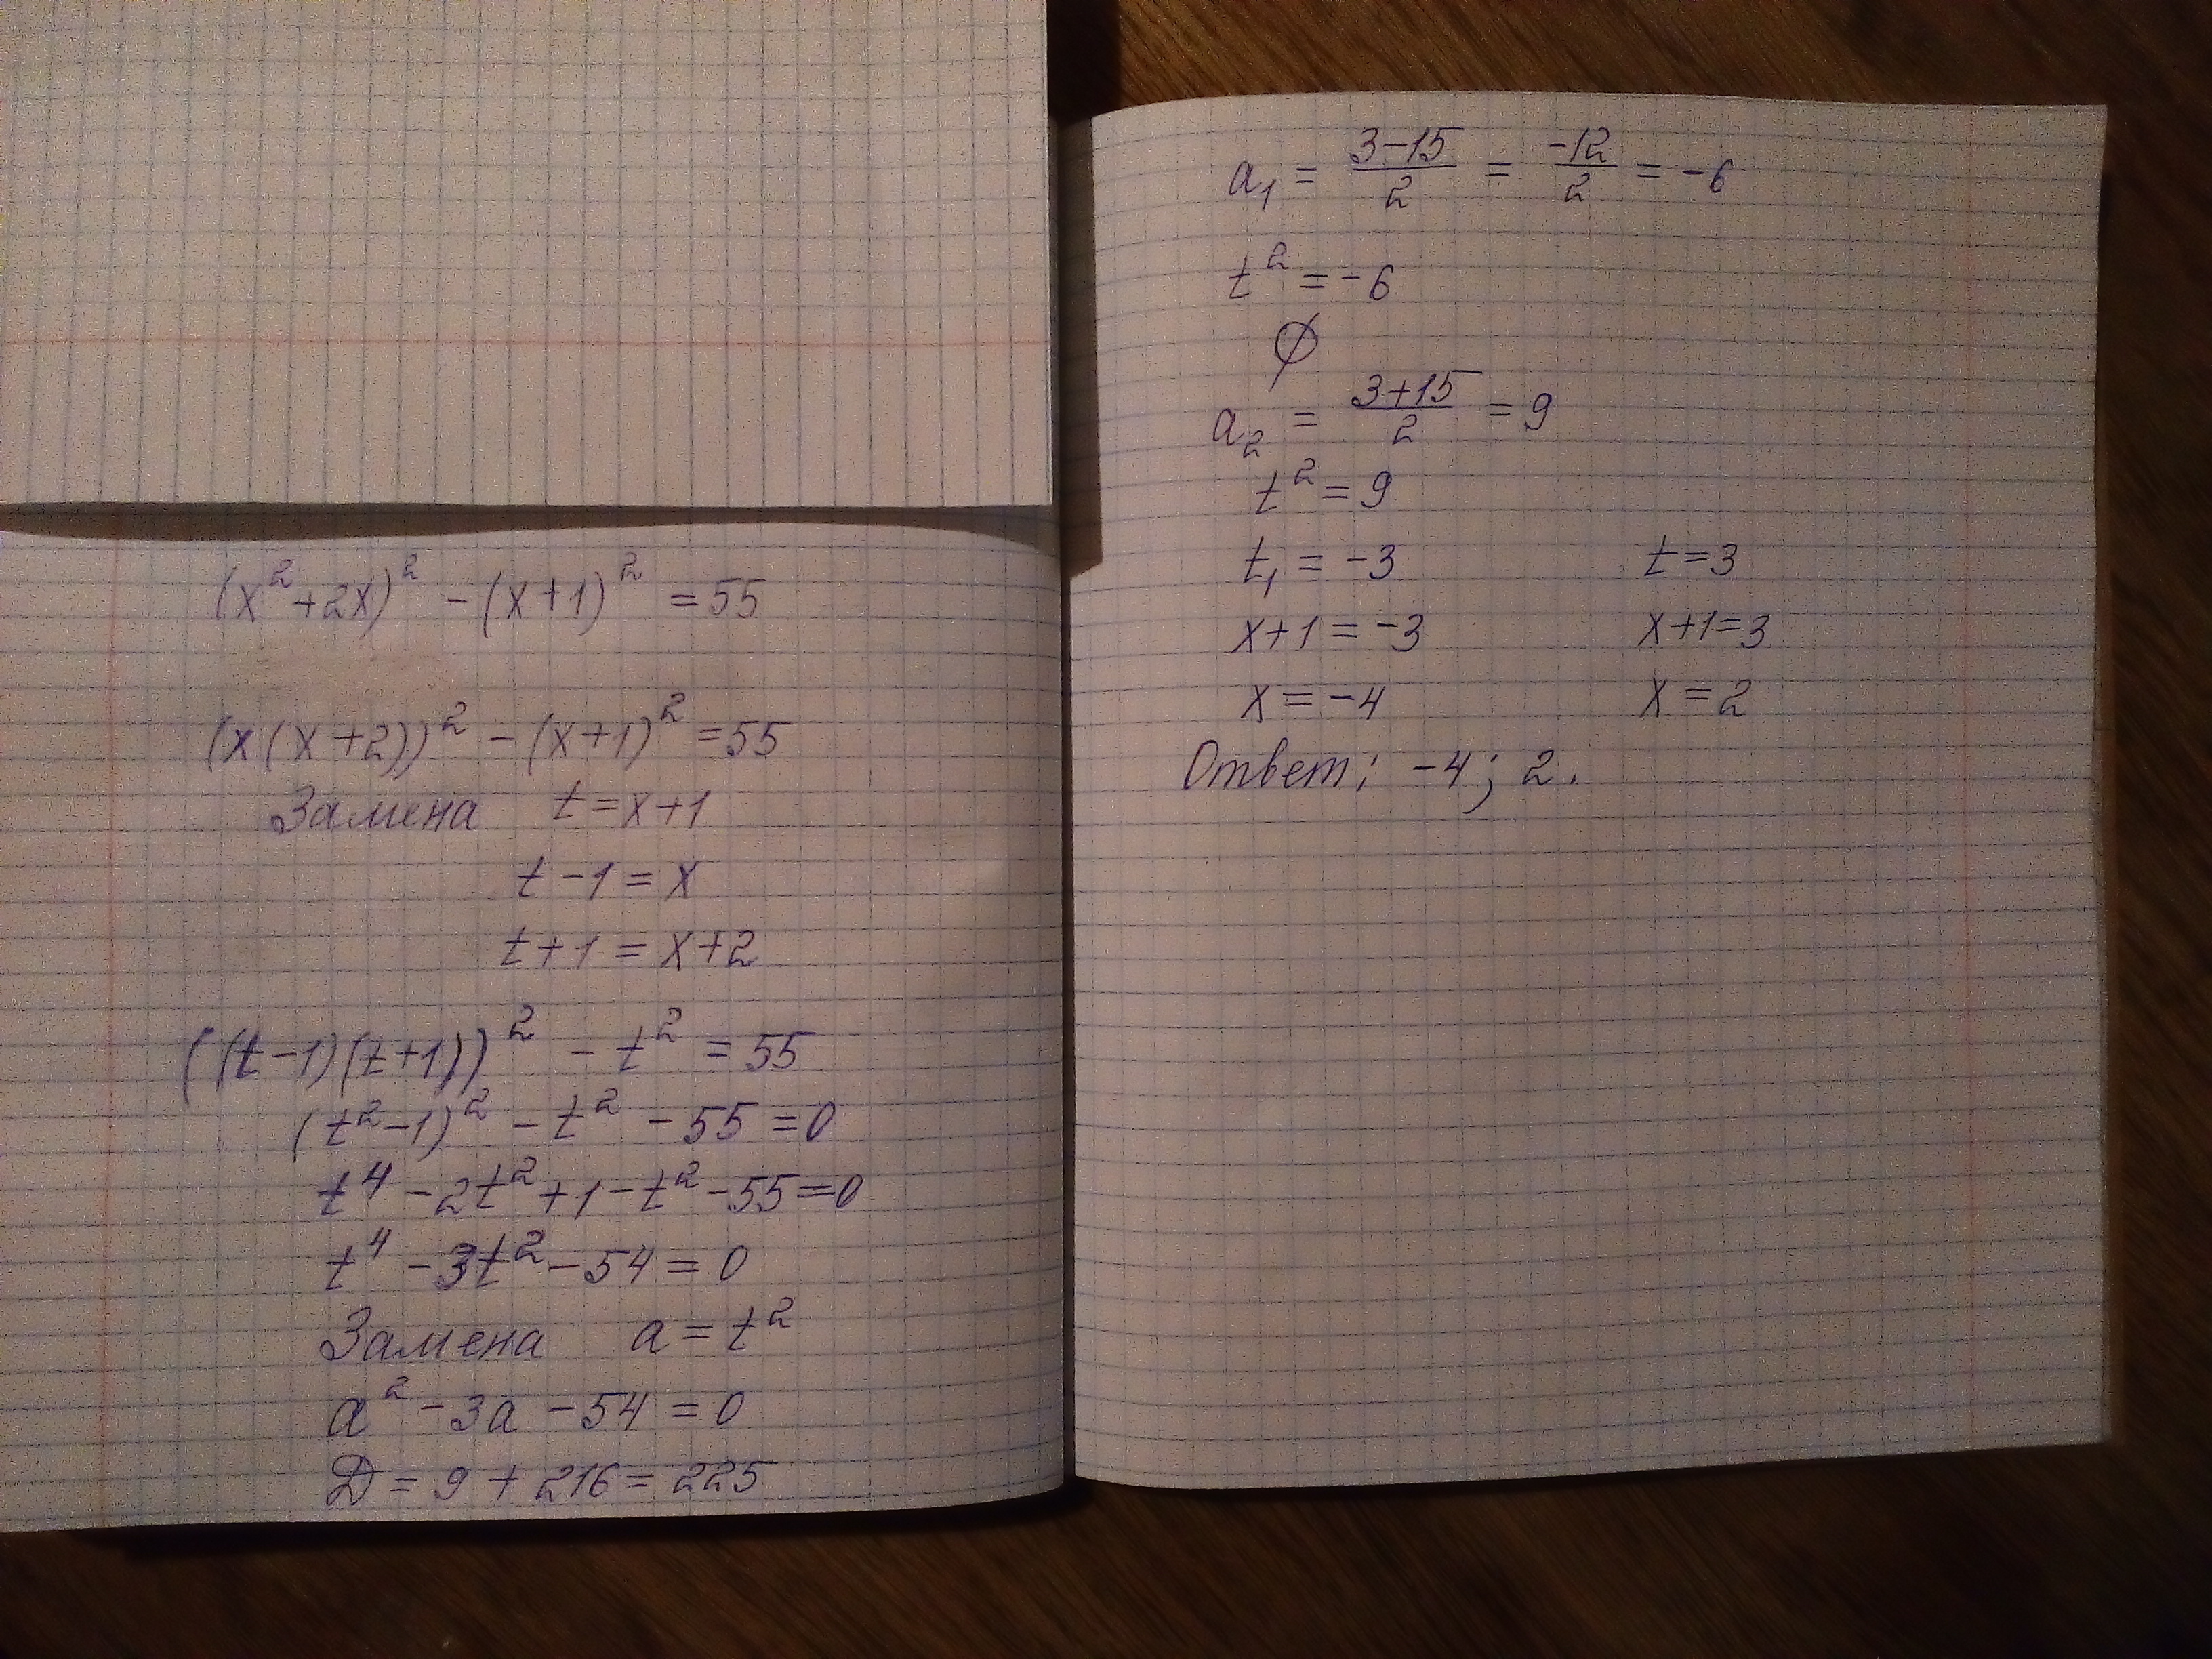 (x²+2x)² - (x+1)² = 55
(x(x+2))² - (x+1)² = 55
Замена t = x+1
t - 1 = x
t + 1 = x+2
((t-1)(t+1))² - t² = 55
(t²-1)² - t² - 55 = 0
t⁴ - 2t² + 1 - t² - 55 = 0
t⁴ - 3t² - 54 = 0
Замена a = t²
a² - 3a - 54 = 0
Д = 9 + 216 = 225
a₁ = (3-15)/2 = -12/2 = -6
t² = -6
∅
a₂ = (3+15)/2 = 9
t² = 9
t₁ = -3 t = 3
x+1 = -3 x+1 = 3
x = -4 x = 2
Ответ: -4; 2.